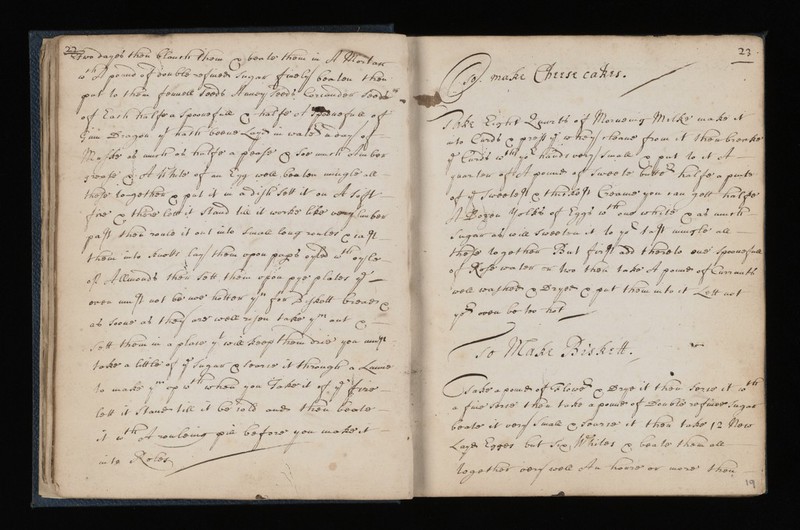 22
Two dayes then blanch them & beate them in A Mortar
wth A pound of double refined Sugar finely beaten then
put to them fennell Seeds Anney Seeds Coriander Seeds
of Each halfe a Spoonefull & halfe A Spoonefull of
Gum Dragon yt hath beene Layd in water a day of
Muske as much as halfe a pease & soe much Amber
grease & A White of an Egg well beaten mingle all
these together & put it in a dish Sett it on A Soft
fire & there lett it Stand till it workes like very limber
past then roule it out into Small long roules & cast
them into knotts lay them upon paper oyld wth oyle
of Allmonds then Sett them upon pye plates ye
oven must not be noe hotter yn for Biskett bread &
as Soone as they are well risen take ym out &
Sett them in a place yt will keep them drie you must
take a little of ye Sugar & searce it through a Lawne
to make ym up wth when you Take it of ye fire
lett it Stand till it be cold and then beate
it wth A rouleing pin before you make it
into Roles
23
To make Cheese cakes.
Take Eight Quarts of Morneing Milke make it
into Curds & press ye whey cleane from it then breake
ye Curds wth yor hands very Small & put to it A
quarter of A pound of Sweete butter halfe a pinte
of ye Sweetest & thickest Creame you can gett halfe
A Dozen Yolkes of Eggs wth one white & as much
Sugar as will Sweeten it to yor tast mingle all
these together But first add thereto one Spoonefull
of Rose water or two then take A pound of Currants
well washed & Dryed & put them into it Lett not
yor oven be too hot
To Make Biskett.
Take a pound of Flower & Drye it then Serce it wth
a fine Serce then take a pound of Double refined Sugar
beate it very Small & Searce it then take 12 New
Layd Egges but Six Whites & beate them all
together very well An houre or more then
19